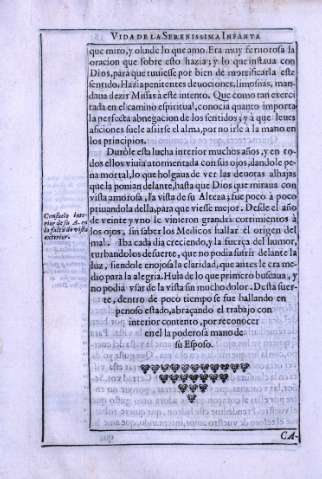 VIDA DE LA SERENISSIMA INFANTA
que miro, y oluide lo que amo. Era muy feruorosa la
oracion que sobre esto hazia; y lo que instaua con
Dios, para que tuuiesse por bien de mortificarla este
sentido. Hazia penitentes deuociones, limosnas, man-
daua dezir Missas a este intento. Que como tan exerci
tada en el camino espiritual, conocia quanto importa
la perfecta abnegacion de los sentidos; y a que leues
aficiones suele asirse el alma, por no irle a la mano en
los principios.
Durole esta lucha interior muchos años, y en to-
dos ellos viuia atormentada con sus ojos, dandole pe-
na mortal, lo que holgaua de ver las deuotas alhajas
que la ponian delante, hasta que Dios que miraua con
vista amorosa, la vista de su Alteza, fue poco a poco
priuandola della, para que viesse mejor. Desde el año
de veinte y vno le vinieron grandes corrimientos à
los ojos, sin saber los Medicos hallar el origen del
mal. Iba cada dia creciendo, y la fuerça del humor,
turbandolos de suerte, que no podia sufrir delante la
luz, siendole enojosa la claridad, que antes le era me-
dio para la alegria. Huìa de lo que primero buscaua, y
no podia vsar de la vista sin mucho dolor. Desta suer-
te, dentro de poco tiempo se fue hallando en
penoso estado, abraçando el trabajo con
interior contento, por reconocer
en èl la poderosa mano de
su Esposo.
Consuelo inte
rior de su A. en
la falta de vista
exterior.
CA-